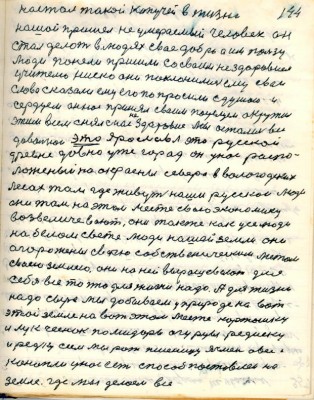 настал такой кипучей в жизни 144
нашой пришел не умераемый человек он
стал делать в людях свае добро или пользу
Люди поняли пришли со своим нездоровием
учителю низко они поклонились ему сваи
слово сказали ему его попросили с душою и
сердцем он их принял своим поцелуем окружил
этим всем снял с нас не здоровие Мы остались все
довольны это Ярославл это русской
древне давно уже горад он у нас распо-
ложеный на окраены севера в вологодских
лесах там где живут наши русские люди
они там на этом месте сваю экономику
возвеличевают, они также как усе люди
на белом свете люди нашай земли они
огорожены сваею собственическим местом
своею землею, они на ней выращевают для
себя все то что для жизни надо. А для жизни
надо сырье мы добываем у природе на вот
этой земле на вот этом месте картошку
и лук чеснок помидоры огурцы редиску
и редку сеем мы рож пшеницу ячмен овес
канопли у нас есть способ поставлен на
земле. где мы делаем все